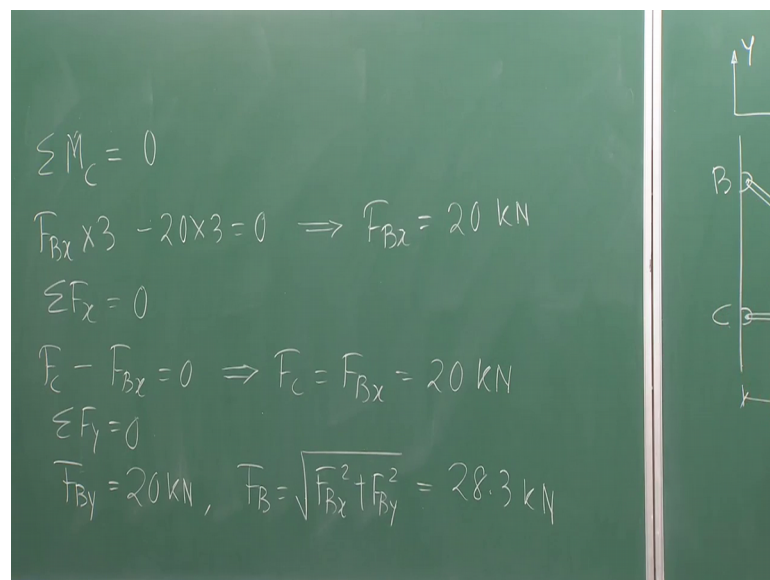 ΣM_C = 0
F_Bx × 3 - 20×3 = 0 ⟹ F_Bx = 20 kN
ΣF_x = 0
F_C - F_Bx = 0 ⟹ F_C = F_Bx = 20 kN
ΣF_y = 0
F_By = 20 kN, F_B = √(F_Bx² + F_By²) = 28.3 kN
Y
B
C